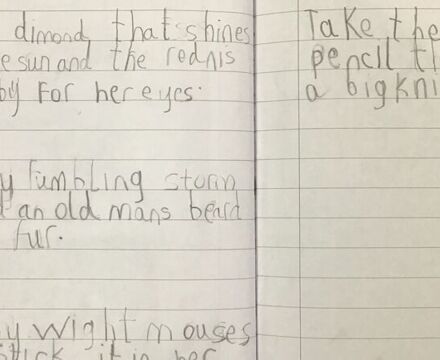 dimond that shines
e sun and the rednis
by For her eyes.
y rumbling storm
an old mans beard
fur.
y wight mouses
stick it in her
Take the
pencil th
a big kni